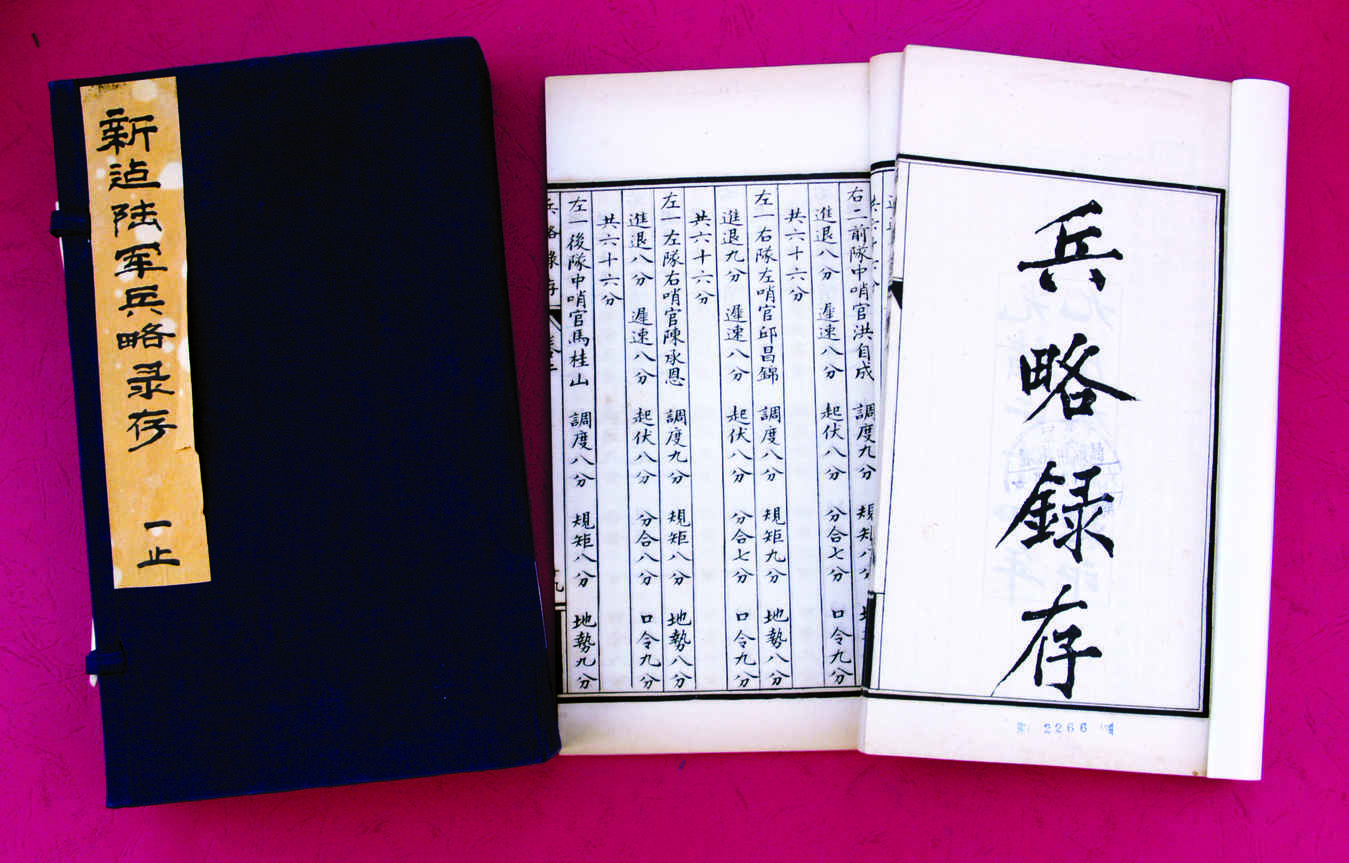 新迠陆军兵略录存 一止
兵略録存
2266
右二前隊中哨官洪自成 調度九分 規矩八分
進退八分 遲速八分 起伏八分 分合七分 口令九分
共六十六分
左一右隊左哨官邱昌錦 調度八分 規矩九分 地勢八分
進退九分 遲速八分 起伏八分 分合七分 口令九分
共六十六分
左一左隊右哨官陳承恩 調度九分 規矩八分 地勢八分
進退八分 遲速八分 起伏八分 分合八分 口令九分
共六十六分
左一後隊中哨官馬桂山 調度八分 規矩八分 地勢九分
兵略錄存